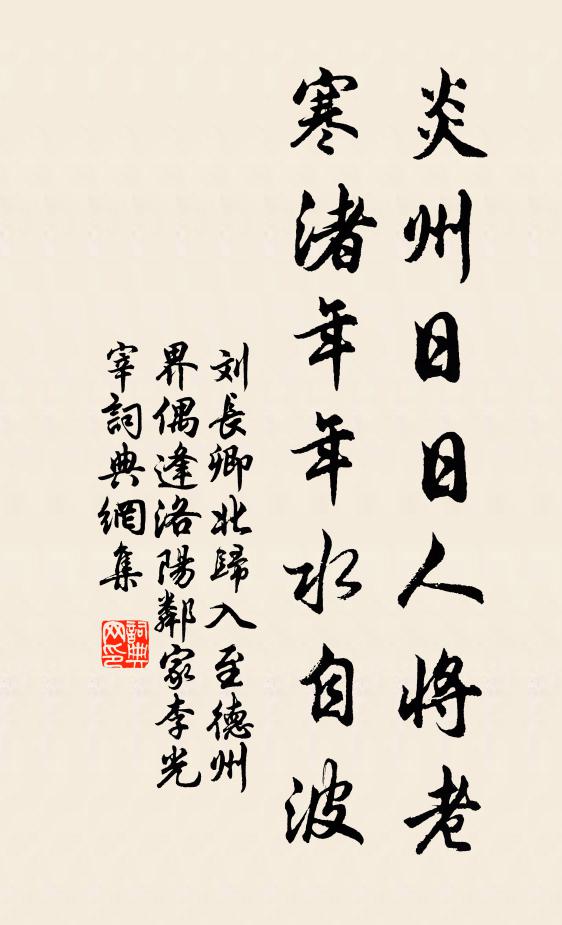 炎州日日人将老
寒渚年年水自波
刘長卿北歸入至德州
界偶逢洛陽鄰家李光
宰詞典網集
詞典
网印